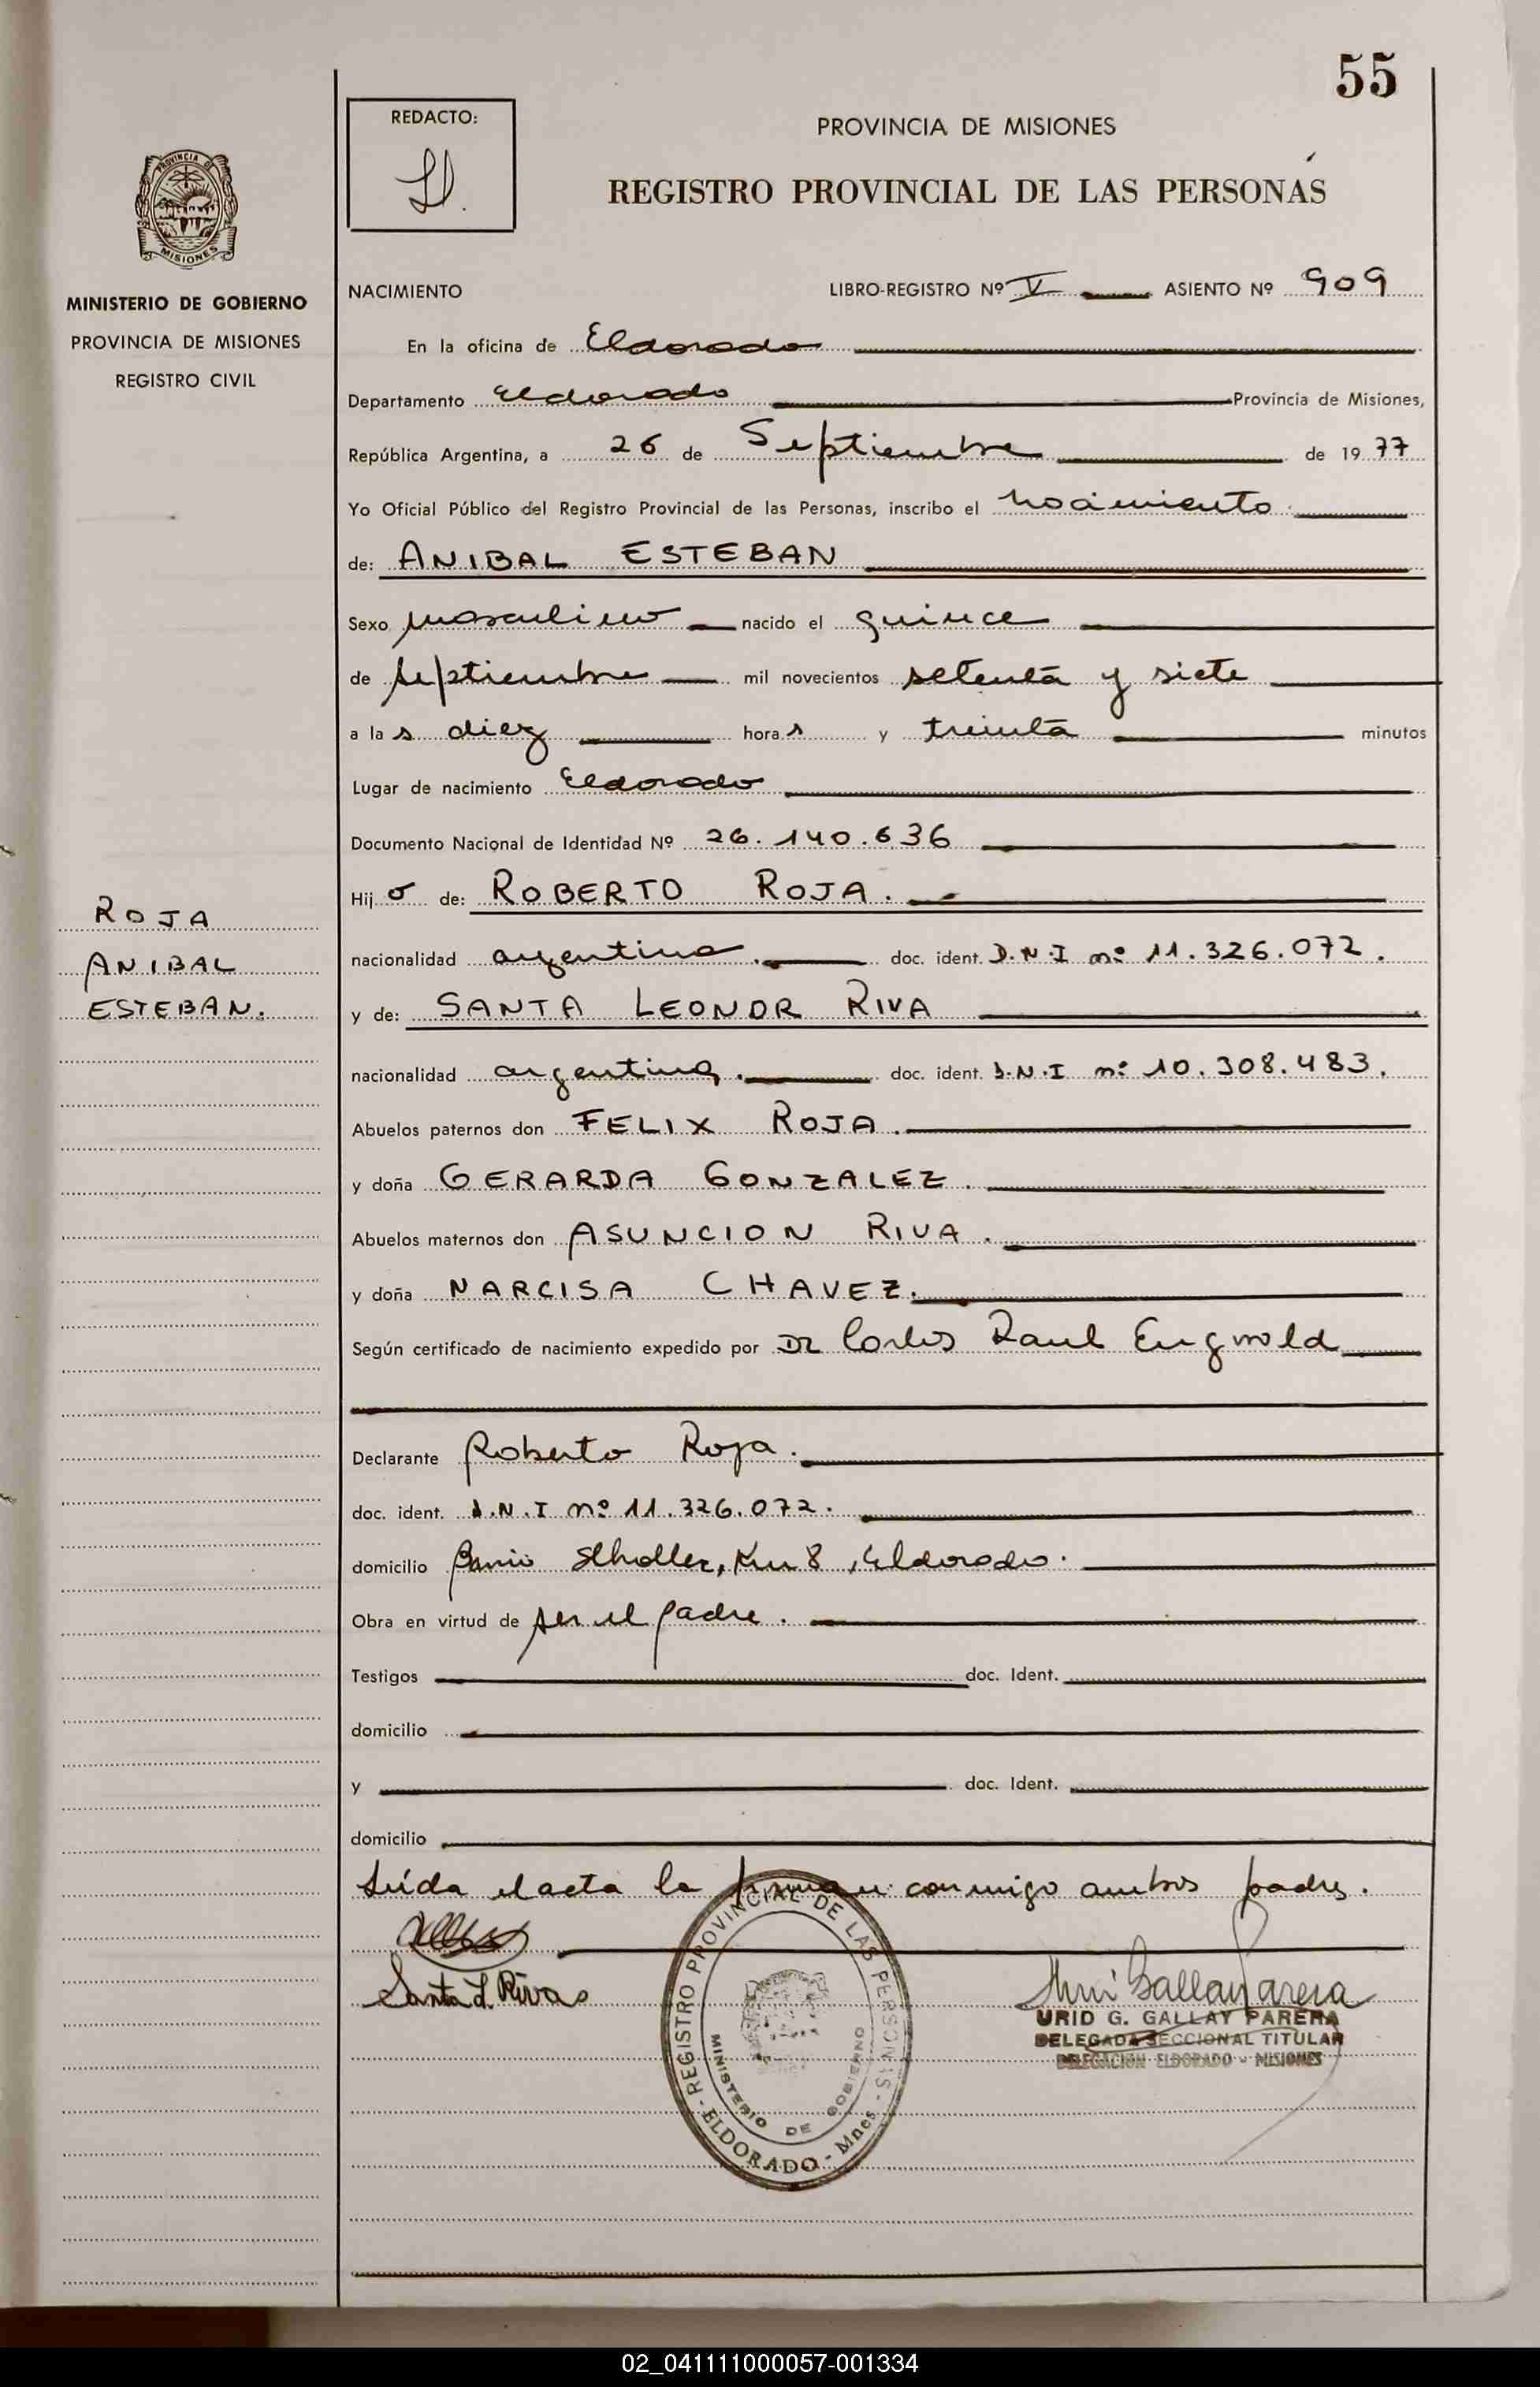 55
REDACTO:
PROVINCIA DE MISIONES
REGISTRO PROVINCIAL DE LAS PERSONAS
PROVINCIA DE
MISIONES
MINISTERIO DE GOBIERNO
PROVINCIA DE MISIONES
REGISTRO CIVIL
NACIMIENTO LIBRO-REGISTRO Nº V ASIENTO Nº 909
En la oficina de Eldorado
Departamento Eldorado Provincia de Misiones,
República Argentina, a 26 de Septiembre de 1977
Yo Oficial Público del Registro Provincial de las Personas, inscribo el nacimiento
de: ANIBAL ESTEBAN
Sexo masculino nacido el quince
de Septiembre mil novecientos setenta y siete
a las diez horas y treinta minutos
Lugar de nacimiento Eldorado
Documento Nacional de Identidad Nº 26.140.636
Hijo de: ROBERTO ROJA.
ROJA
ANIBAL
ESTEBAN.
nacionalidad argentina. doc. ident. D.N.I nº 11.326.072.
y de: SANTA LEONOR RIVA
nacionalidad argentina. doc. ident. D.N.I nº 10.308.483.
Abuelos paternos don FELIX ROJA.
y doña GERARDA GONZALEZ.
Abuelos maternos don ASUNCION RIVA.
y doña NARCISA CHAVEZ.
Según certificado de nacimiento expedido por DR Carlos Raul
Declarante Roberto Roja.
doc. ident. D.N.I nº 11.326.072.
domicilio Barrio Km 8, Eldorado.
Obra en virtud de ser el padre.
Testigos doc. Ident.
domicilio
y doc. Ident.
domicilio
Leída el acta la firman conmigo ambos padres.
Santa L. Rivas
REGISTRO PROVINCIAL DE LAS PERSONAS - ELDORADO - Mnes -
MINISTERIO DE GOBIERNO
URID G. GALLAY PARERA
DELEGADA SECCIONAL TITULAR
DELEGACION ELDORADO - MISIONES
02_041111000057-001334